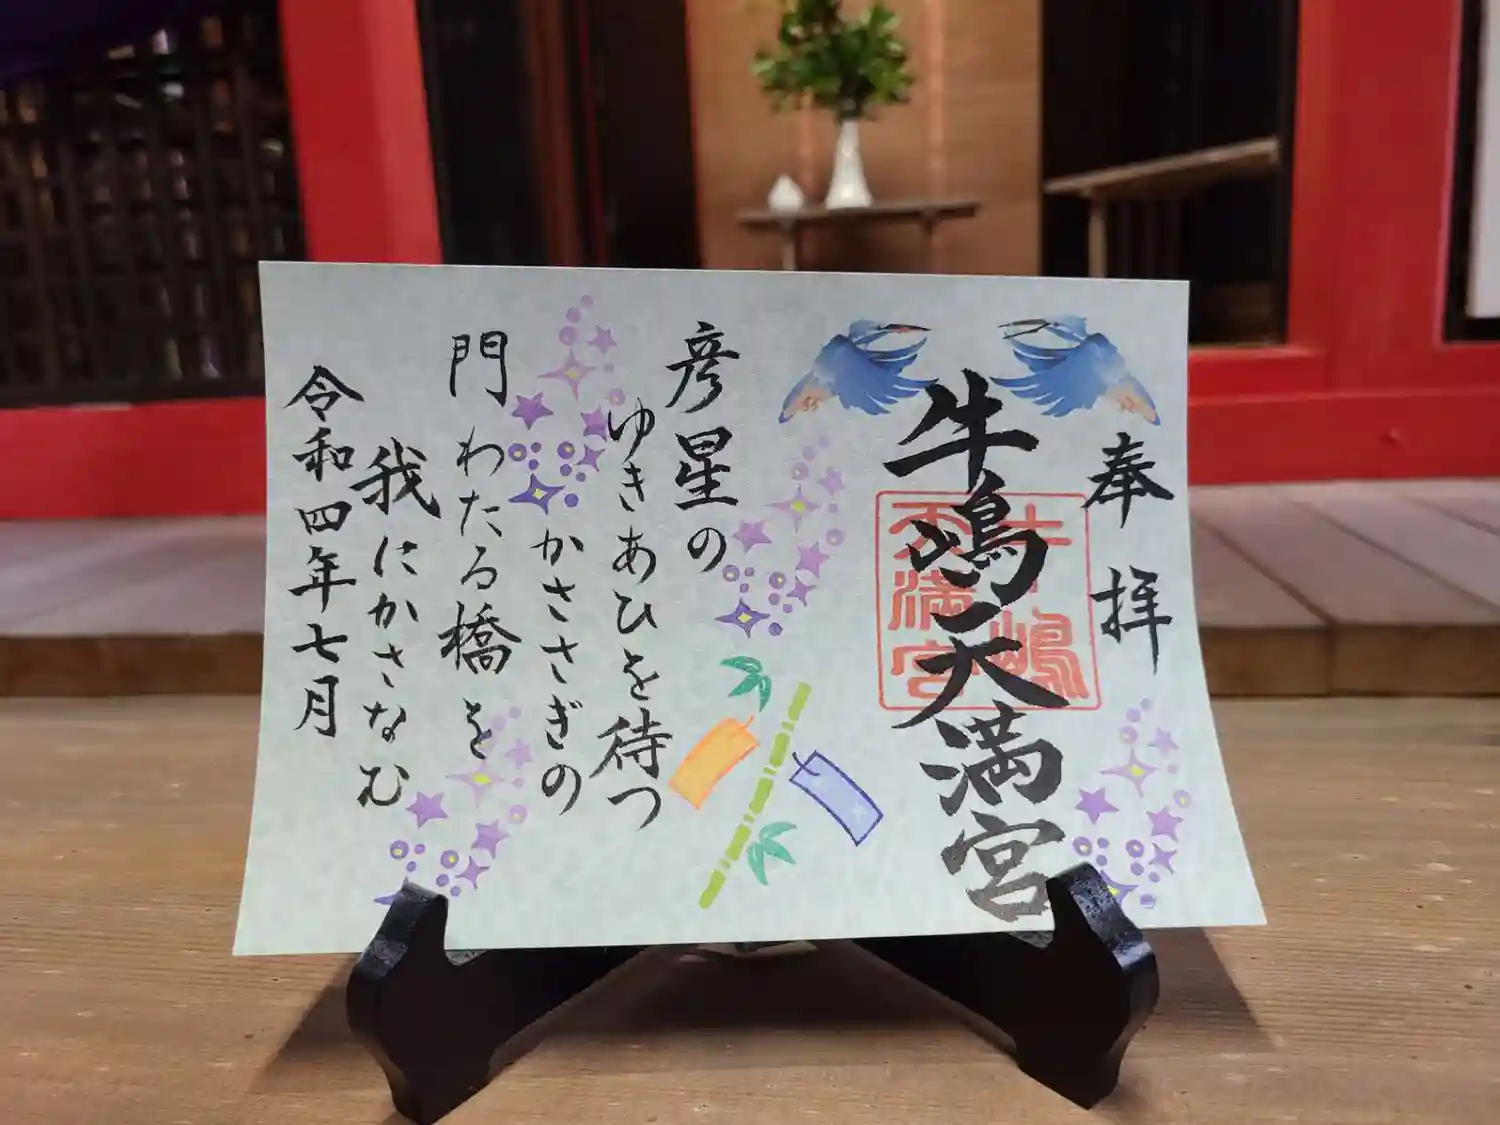 奉拝
牛嶋天満宮
牛嶋
天満宮
彦星の
ゆきあひを待つ
かささぎの
門わたる橋を
我にかさなむ
令和四年七月